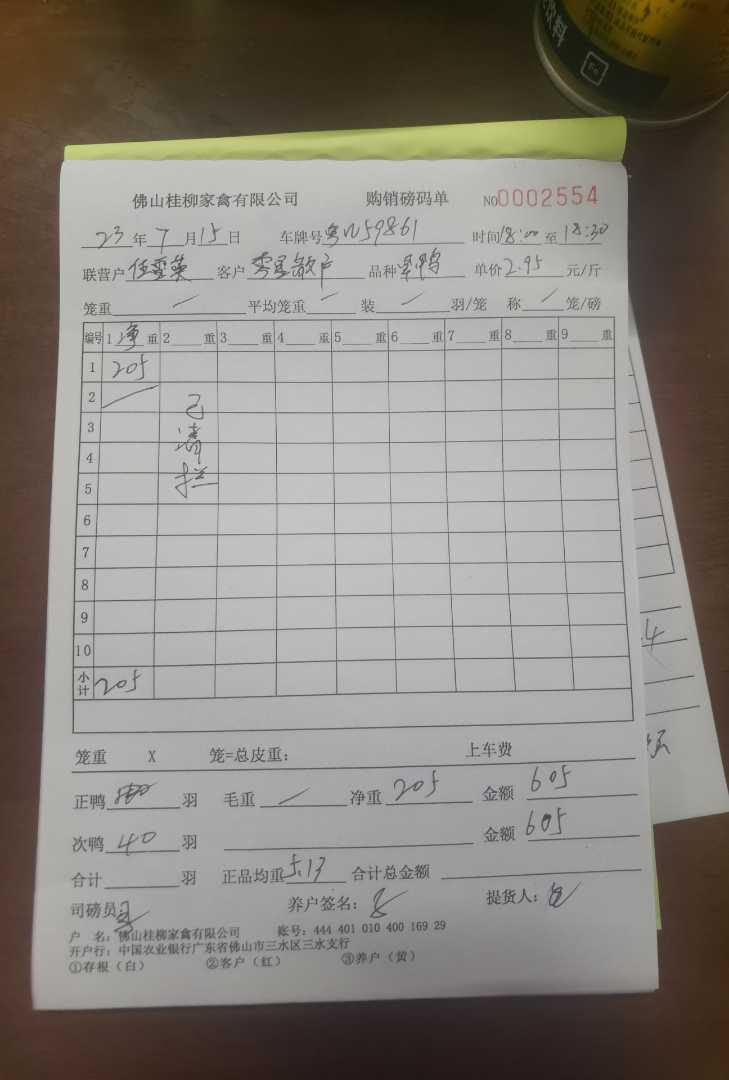 饮料
Fe
佛山桂柳家禽有限公司 购销磅码单 NO0002554
23年7月15日 车牌号粤W59861 时间18:00至18:30
联营户 客户零星散户 品种旱鸭 单价2.95元/斤
笼重 / 平均笼重 / 装 / 羽/笼 称 / 笼/磅
编号 1净重 2 重 3 重 4 重 5 重 6 重 7 重 8 重 9 重
1 205
2 /
3 已
4 清
5 栏
6
7
8
9
10
小计 205
笼重 X 笼=总皮重: 上车费
正鸭 羽 毛重 / 净重205 金额605
次鸭40羽 金额605
合计 羽 正品均重5.13 合计总金额
司磅员: 养户签名: 提货人:
户 名:佛山桂柳家禽有限公司 账号:444 401 010 400 169 29
开户行:中国农业银行广东省佛山市三水区三水支行
①存根(白) ②客户(红) ③养户(黄)